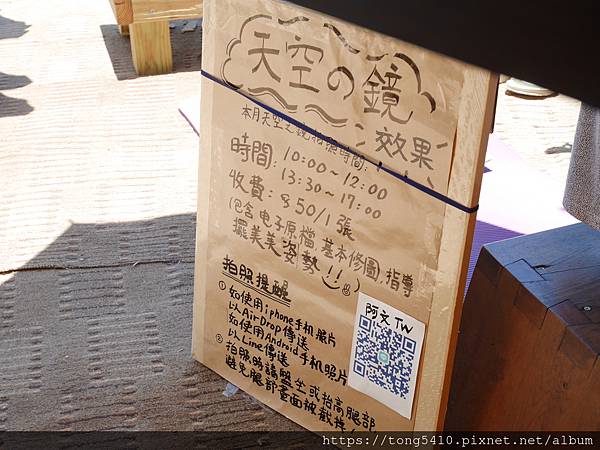 天空の鏡
效果
本月天空之鏡拍照時間:
時間: 10:00~12:00
13:30~17:00
收費: $50/1張
(包含电子原檔.基本修圖.指導
擺美美姿勢!!
拍照提醒
①如使用iphone手机照片
以AirDrop傳送
如使用Android手机照片
以Line傳送
②拍照時請盤坐或抬高腿部
避免腿部畫面被截掉!
阿文TW
https://tong5410.pixnet.net/album